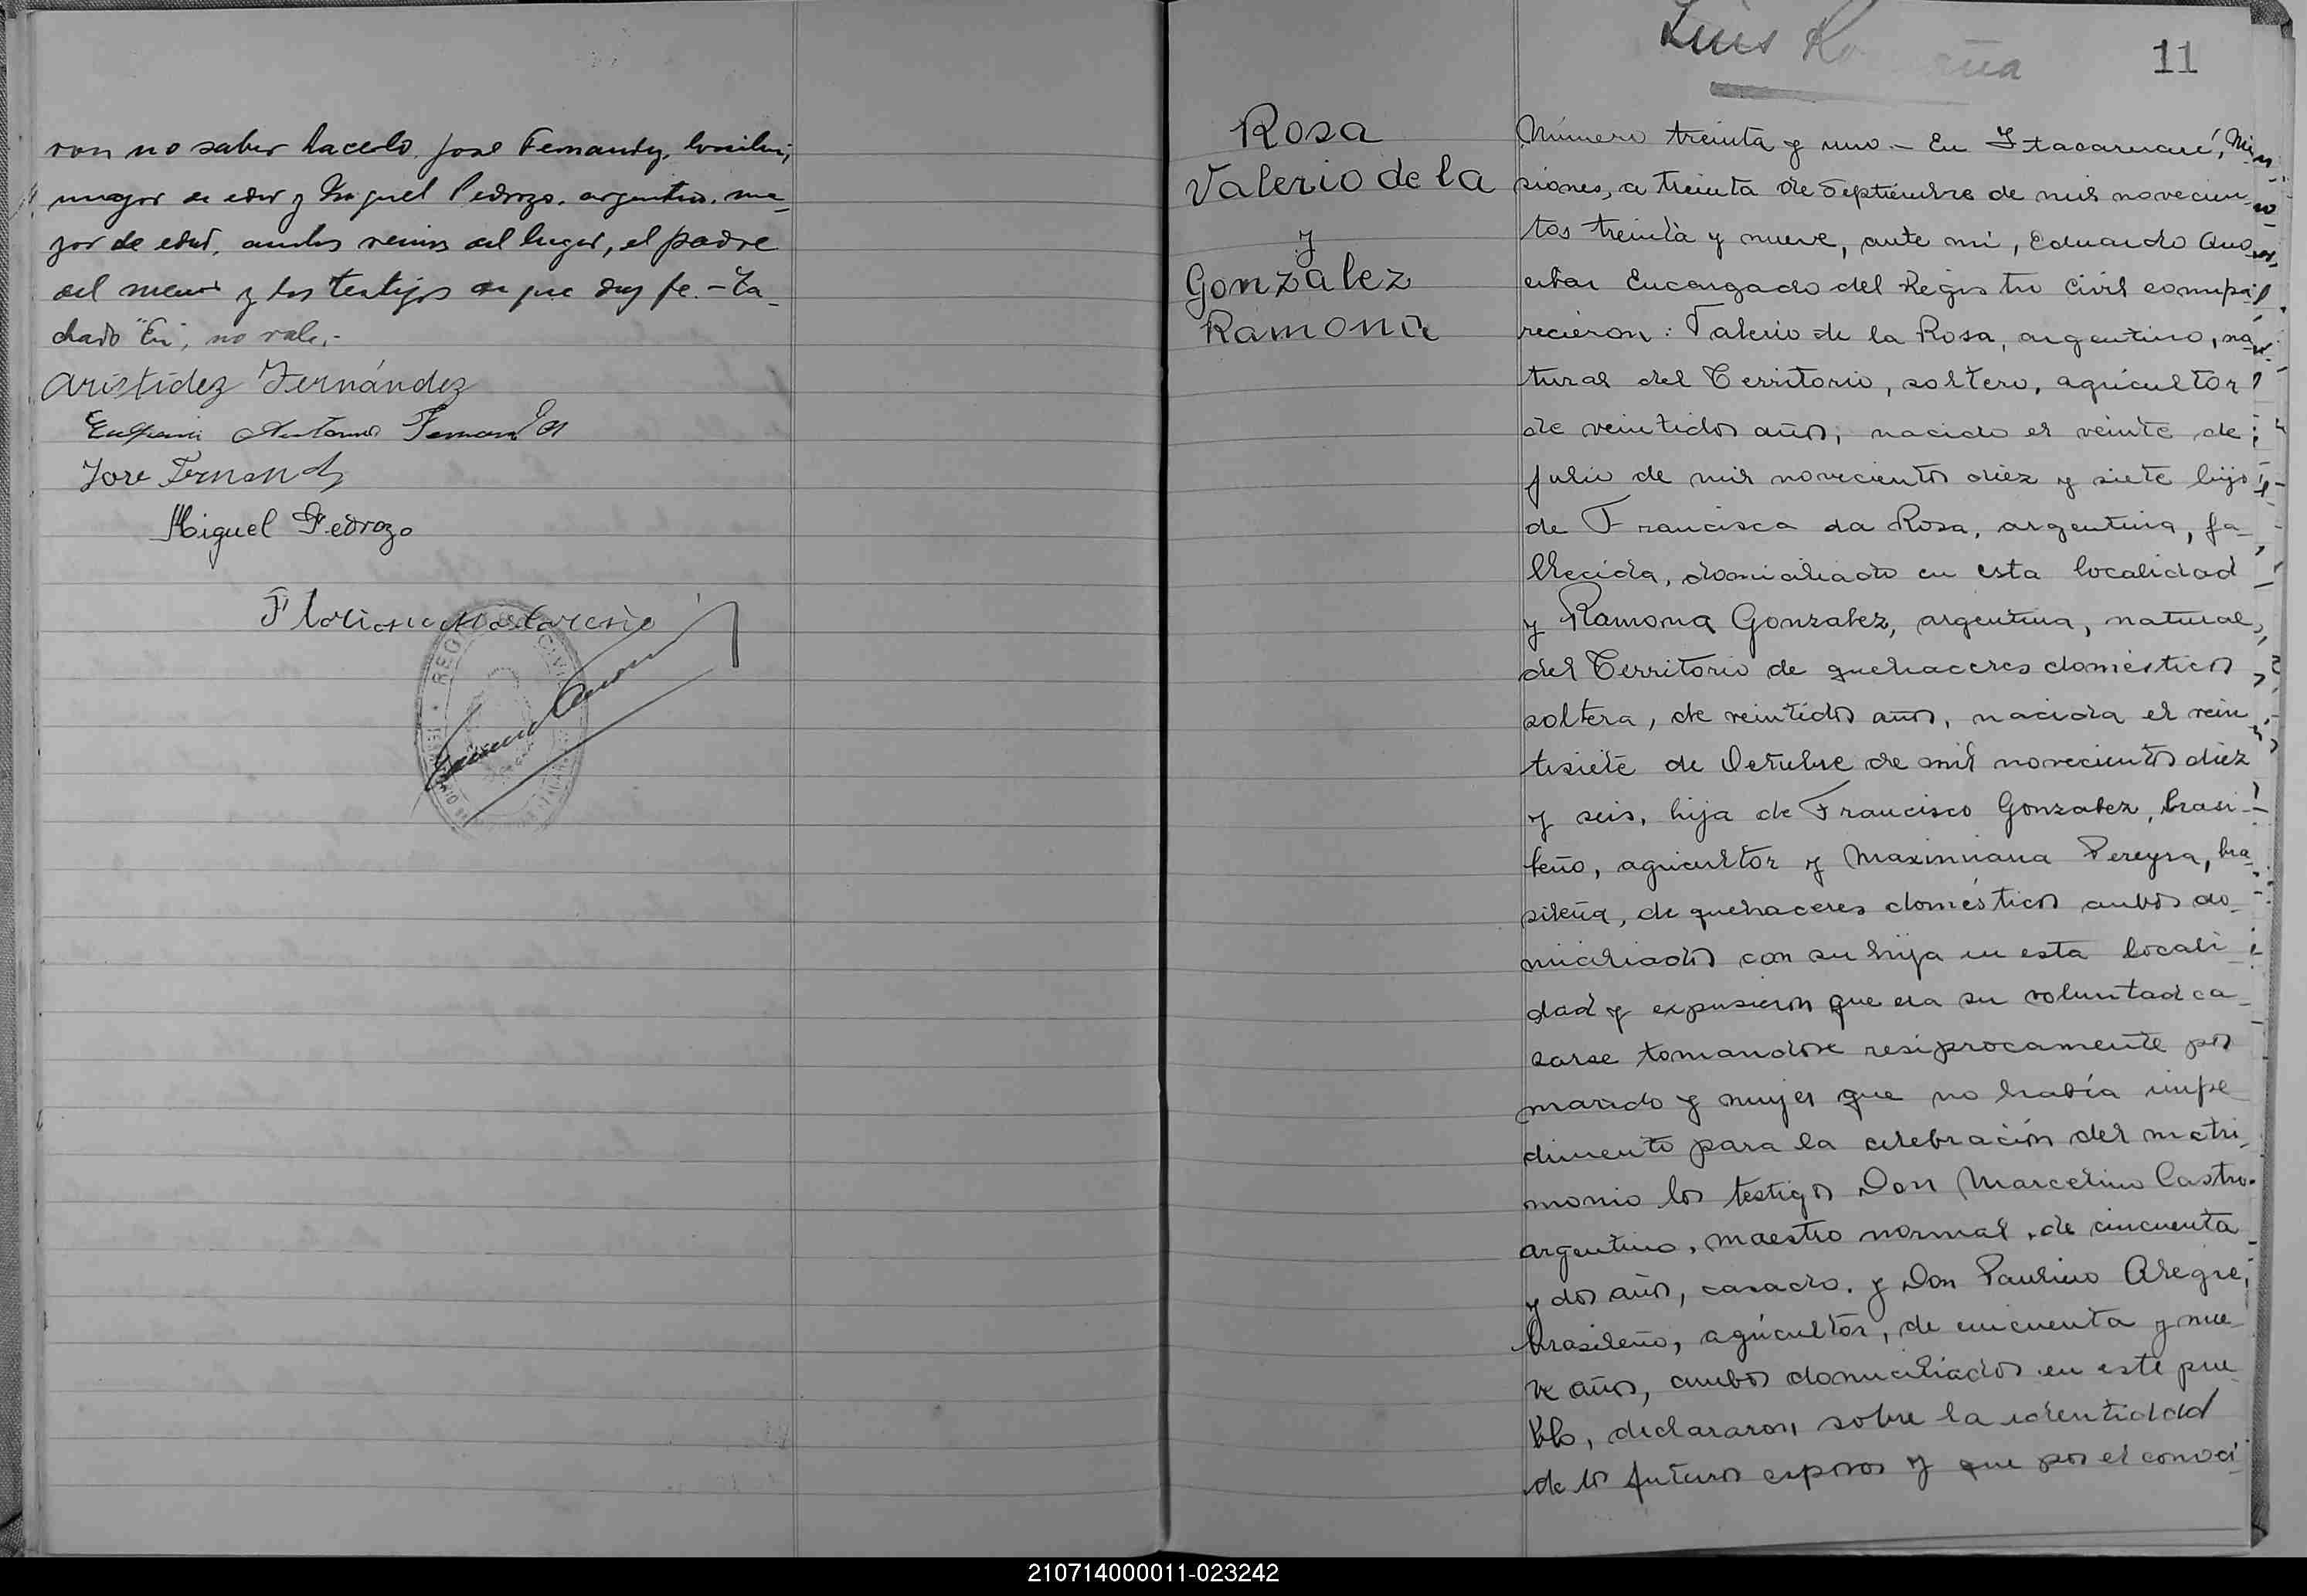 ron no saber hacerlo, José Fernandez, brasilero,
mayor de edad y Miguel Pedrozo, argentino, ma-
yor de edad, ambos vecinos del lugar, el padre
del menor y los testigos de que doy fe.- Ta-
chado "En", no vale.-
Aristidez Fernández
Antonio Fernandez
Jose Fernandz
Miguel Pedrozo
Luis
11
Rosa
Valerio de la
y
González
Ramona
Número treinta y uno.- En Itacaruaré, Mi
siones, a treinta de Septiembre de mil novecien
tos treinta y nueve, ante mi, Eduardo
Encargado del Registro Civil compa
recieron: Valerio de la Rosa, argentino, na
tural del Territorio, soltero, agricultor
de veintidos años, nacido el veinte de
julio de mil novecientos diez y siete hijo
de Francisca da Rosa, argentina, fa-
llecida, domiciliado en esta localidad
y Ramona Gonzalez, argentina, natural
del Territorio de quehaceres domésticos
soltera, de veintidos años, nacida el vein
tisiete de Octubre de mil novecientos diez
y seis, hija de Francisco Gonzalez, brasi-
leño, agricultor y Maximiana Pereyra, bra-
sileña, de quehaceres domésticos ambos do-
miciliados con su hija en esta locali
dad y expusieron que era su voluntad ca-
sarse tomandose resiprocamente por
marido y mujer que no había impe
dimento para la celebración del matri-
monio los testigos Don Marcelino Castro.
argentino, maestro normal, de cincuenta
y dos años, casado. y Don Paulino Alegre,
brasileño, agricultor, de cincuenta y nue
ve años, ambos domiciliados en este pue
blo, declararon sobre la identidad
de los futuros esposos y que por el conoci
210714000011-023242